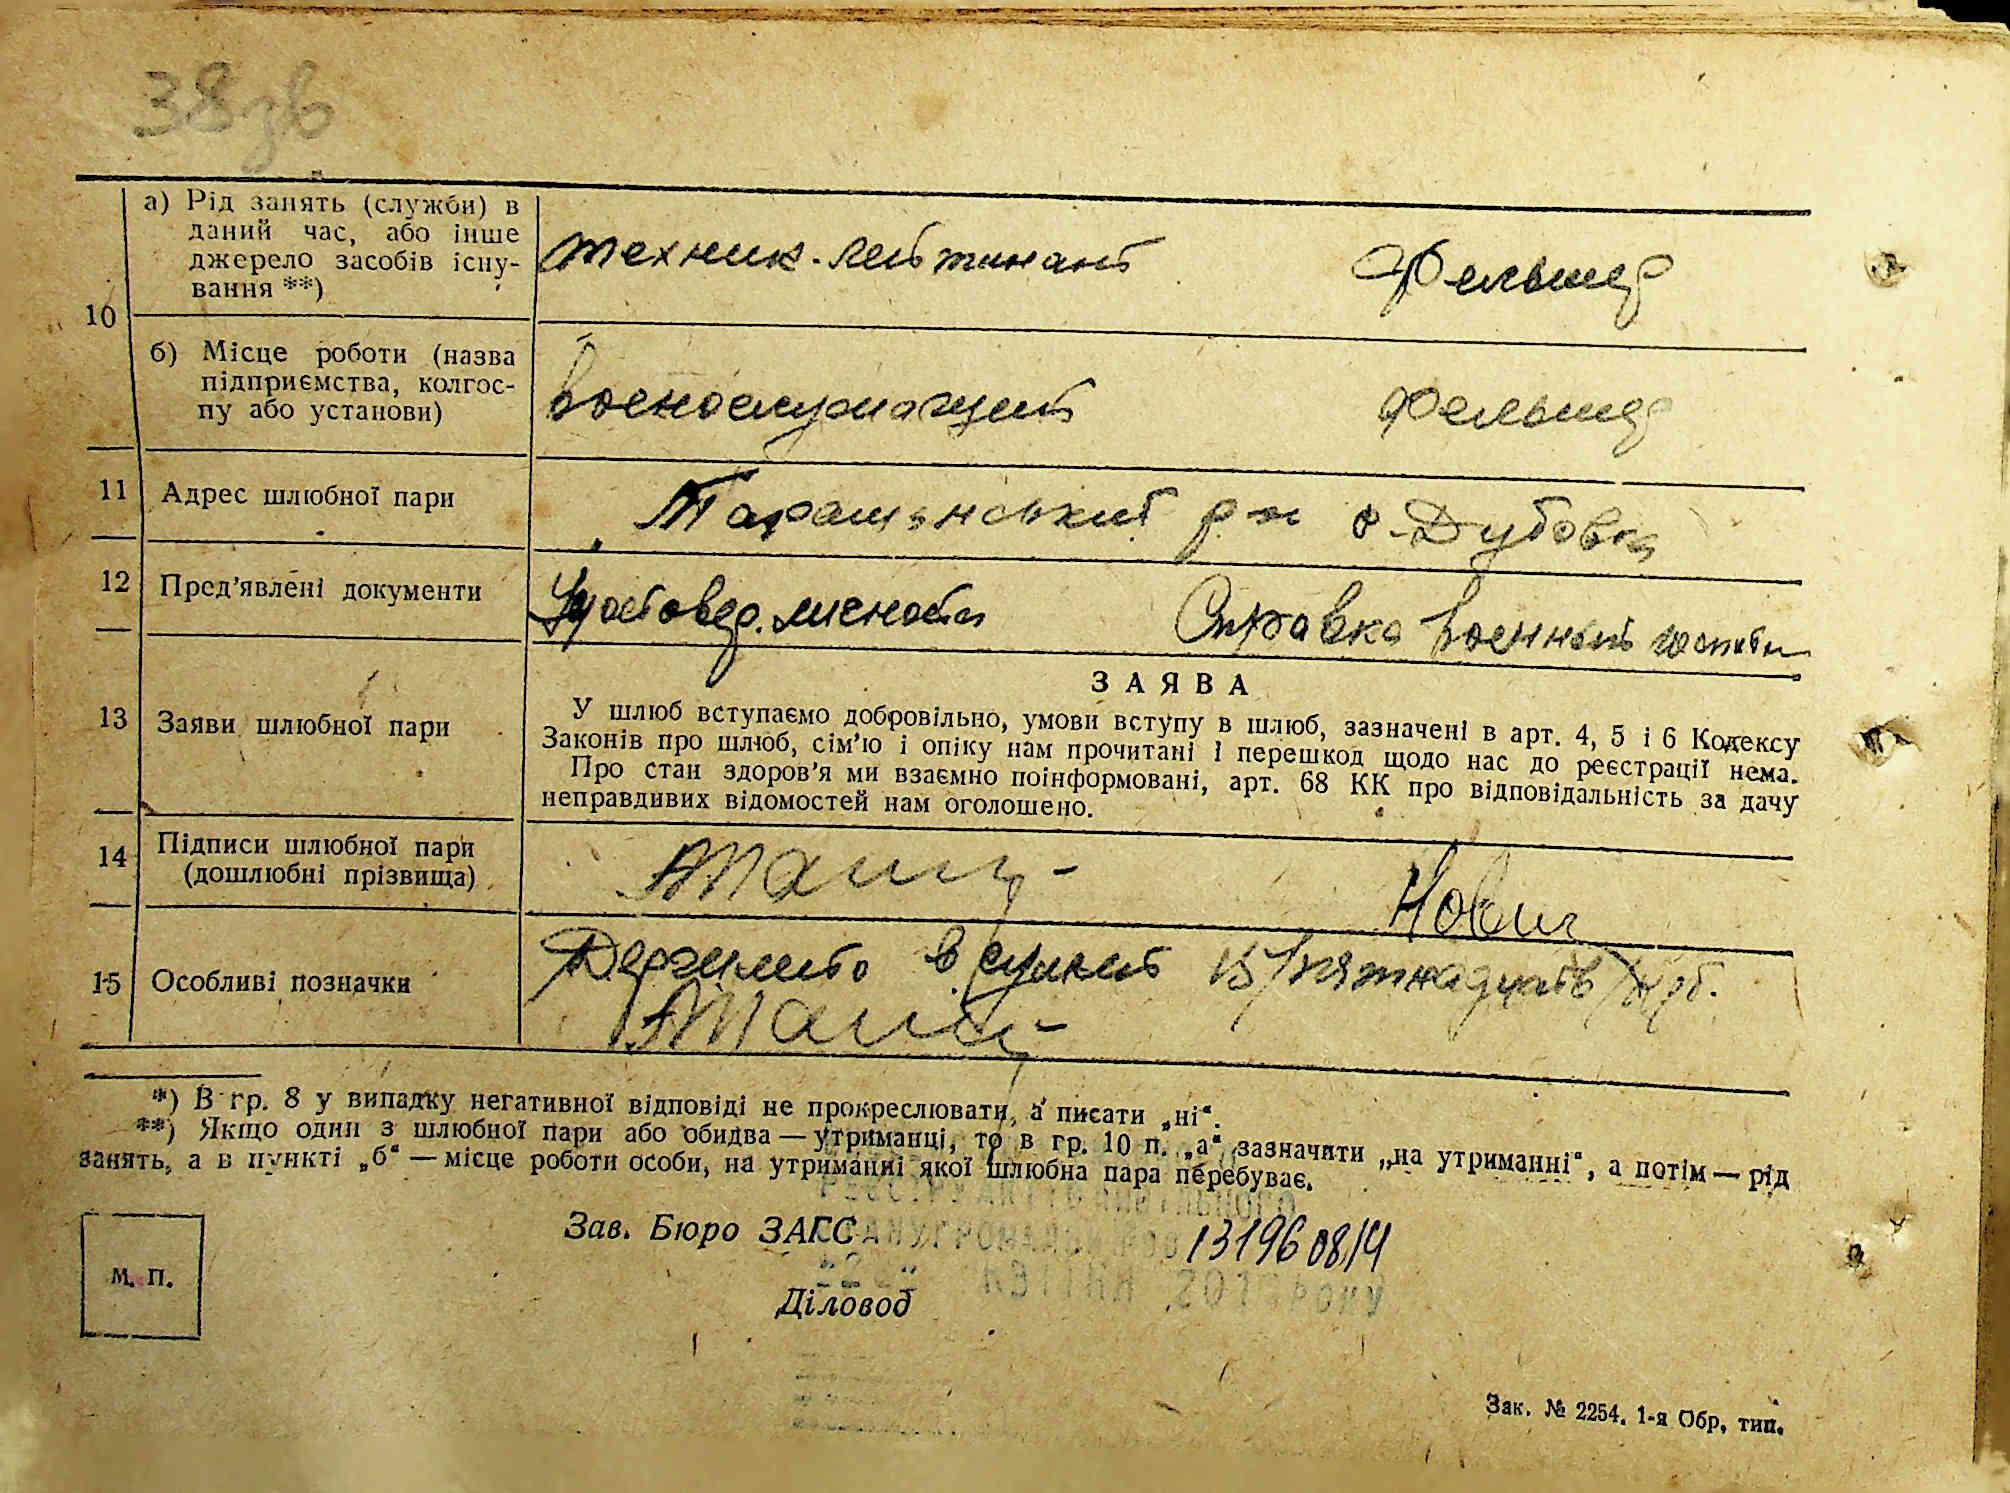 38 зв
а) Рід занять (служби) в
даний час, або інше
джерело засобів існу-
вання **)
техник-лейтинант фельшер
10
б) Місце роботи (назва
підприємства, колгос-
пу або установи)
военослужащий фельшер
11 Адрес шлюбної пари
Таращанський р-н с. Дубовка
12 Пред'явлені документи
Удостовер. личности Справка военный
13 Заяви шлюбної пари
ЗАЯВА
У шлюб вступаємо добровільно, умови вступу в шлюб, зазначені в арт. 4, 5 і 6 Кодексу
Законів про шлюб, сім'ю і опіку нам прочитані і перешкод щодо нас до реєстрації нема.
Про стан здоров'я ми взаємно поінформовані, арт. 68 КК про відповідальність за дачу
неправдивих відомостей нам оголошено.
14 Підписи шлюбної пари
(дошлюбні прізвища)
15 Особливі позначки
в сумме 15/пятнадцать/крб.
*) В гр. 8 у випадку негативної відповіді не прокреслювати, а писати „ні“.
**) Якщо один з шлюбної пари або обидва — утриманці, то в гр. 10 п. „а“ зазначити „на утриманні“, а потім — рід
занять, а в пункті „б“ — місце роботи особи, на утриманні якої шлюбна пара перебуває.
Зав. Бюро ЗАГС
1319608/4
м. п.
Діловод
РОКУ
Зак. № 2254. 1-я Обр. тип.